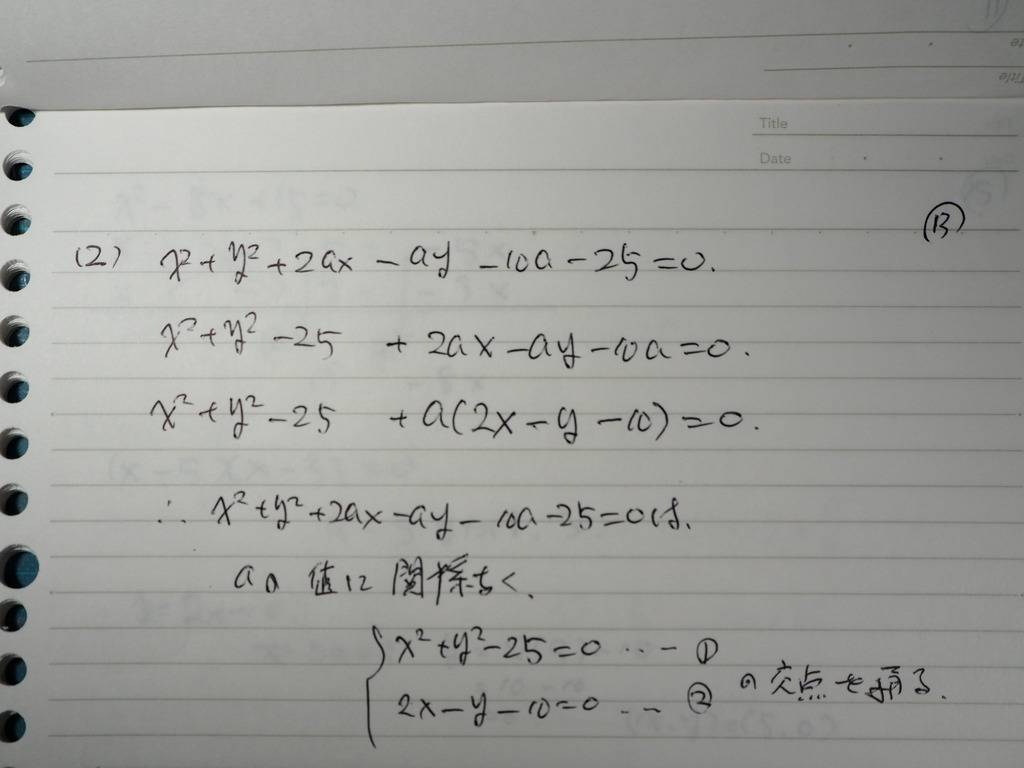 Title
Date
⑬
(2) x²+y²+2ax-ay-10a-25=0.
x²+y²-25 +2ax-ay-10a=0.
x²+y²-25 +a(2x-y-10)=0.
∴ x²+y²+2ax-ay-10a-25=0は、
aの値に関係なく、
x²+y²-25=0 ‥‥ ①
2x-y-10=0 ‥‥ ② の交点を通る.